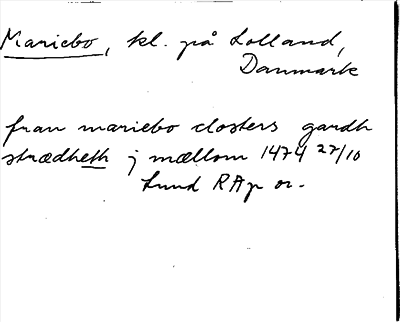 Mariebo, kl. på Lolland,
Danmark
fran mariebo closters gardh
strædheth j mællom 1474 27/10
Lund RAp or.